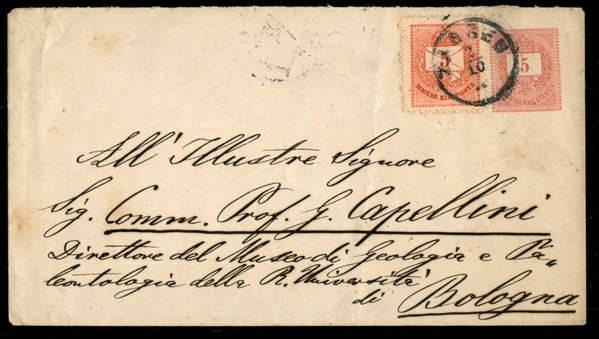 ZAGREB
2/10
5
MAGYAR KIR. POSTA
5
MAGYAR KIR. POSTA
All' Illustre Signore
Sig. Comm. Prof. G. Capellini
Direttore del Museo di Geologia e Pa„
leontologia della R. Università
di
Bologna